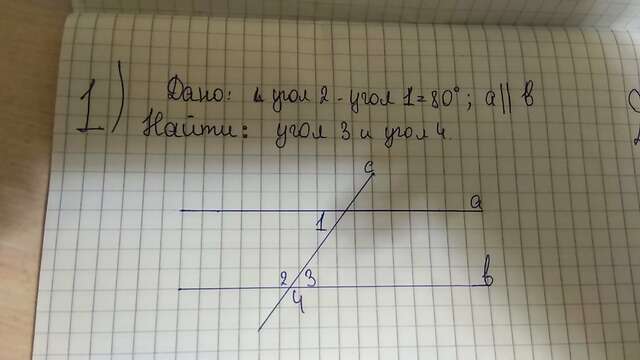 1) Дано: угол 2 - угол 1 = 80°; a || b
Найти: угол 3 и угол 4.
c
a
1
2 3
b
4